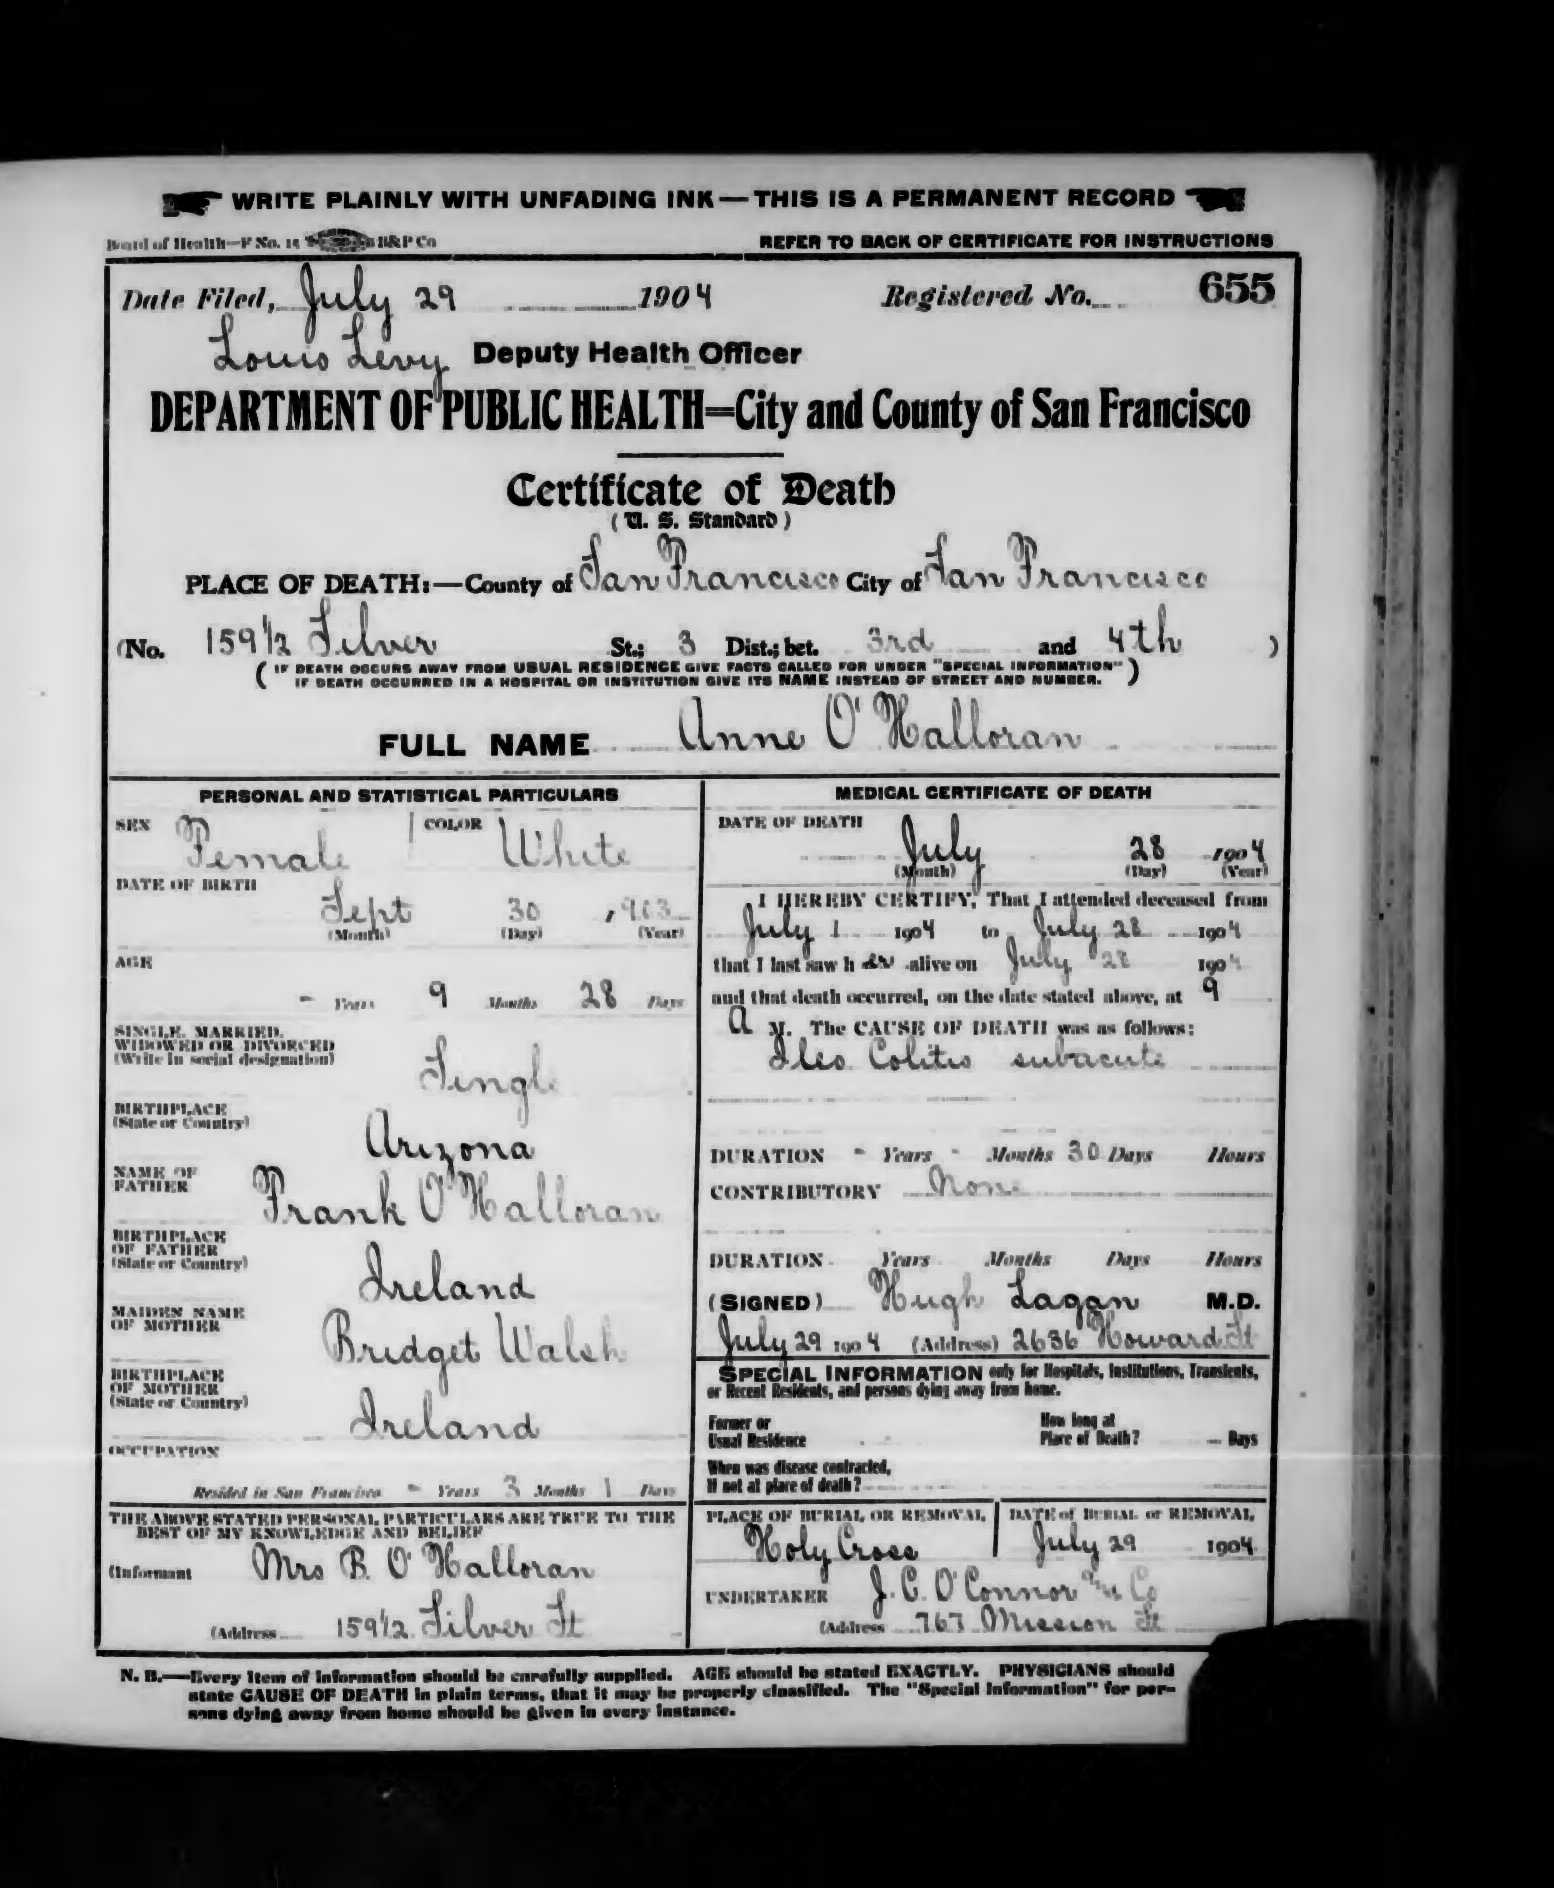 WRITE PLAINLY WITH UNFADING INK—THIS IS A PERMANENT RECORD
Board of Health—F No. 15 B&P Co REFER TO BACK OF CERTIFICATE FOR INSTRUCTIONS
Date Filed, July 29 1904 Registered No. 655
Louis Levy Deputy Health Officer
DEPARTMENT OF PUBLIC HEALTH=City and County of San Francisco
Certificate of Death
(U. S. Standard)
PLACE OF DEATH:—County of San Francisco City of San Francisco
(No. 159 1/2 Silver St.; 3 Dist.; bet. 3rd and 4th )
( IF DEATH OCCURS AWAY FROM USUAL RESIDENCE GIVE FACTS CALLED FOR UNDER "SPECIAL INFORMATION" )
IF DEATH OCCURRED IN A HOSPITAL OR INSTITUTION GIVE ITS NAME INSTEAD OF STREET AND NUMBER.
FULL NAME Anne O'Halloran
PERSONAL AND STATISTICAL PARTICULARS
SEX Female COLOR White
DATE OF BIRTH
Sept 30 , 903
(Month) (Day) (Year)
AGE
- Years 9 Months 28 Days
SINGLE, MARRIED,
WIDOWED OR DIVORCED
(Write in social designation)
Single
BIRTHPLACE
(State or Country)
Arizona
NAME OF
FATHER
Frank O'Halloran
BIRTHPLACE
OF FATHER
(State or Country)
Ireland
MAIDEN NAME
OF MOTHER
Bridget Walsh
BIRTHPLACE
OF MOTHER
(State or Country)
Ireland
OCCUPATION
Resided in San Francisco - Years 3 Months 1 Days
THE ABOVE STATED PERSONAL PARTICULARS ARE TRUE TO THE
BEST OF MY KNOWLEDGE AND BELIEF
(Informant Mrs B. O'Halloran
(Address 159 1/2 Silver St
MEDICAL CERTIFICATE OF DEATH
DATE OF DEATH
July 28 1904
(Month) (Day) (Year)
I HEREBY CERTIFY, That I attended deceased from
July 1 1904 to July 28 1904
that I last saw h er alive on July 28 1904
and that death occurred, on the date stated above, at 9
A M. The CAUSE OF DEATH was as follows:
Ileo Colitis subacute
DURATION - Years - Months 30 Days Hours
CONTRIBUTORY None
DURATION Years Months Days Hours
(SIGNED) Hugh Lagan M.D.
July 29 1904 (Address) 2636 Howard St
SPECIAL INFORMATION only for Hospitals, Institutions, Transients,
or Recent Residents, and persons dying away from home.
Former or
Usual Residence
How long at
Place of Death? Days
When was disease contracted,
If not at place of death?
PLACE OF BURIAL OR REMOVAL
Holy Cross
DATE of BURIAL or REMOVAL
July 29 1904
UNDERTAKER J. C. O'Connor and Co
(Address 767 Mission St
N. B.—Every item of information should be carefully supplied. AGE should be stated EXACTLY. PHYSICIANS should
state CAUSE OF DEATH in plain terms, that it may be properly classified. The "Special Information" for per-
sons dying away from home should be given in every instance.